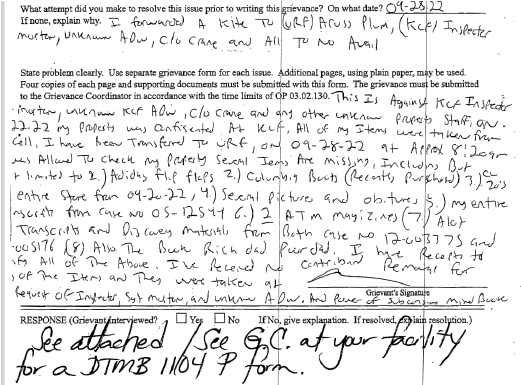 What attempt did you make to resolve this issue prior to writing this grievance? On what date? 09-28-22
If none, explain why. I forwarded A Kite To (URF) Aruss Plum, (KCF) Inspector
morton, unknown ADW, C/O Crane and All To No Avail
State problem clearly. Use separate grievance form for each issue. Additional pages, using plain paper, may be used.
Four copies of each page and supporting documents must be submitted with this form. The grievance must be submitted
to the Grievance Coordinator in accordance with the time limits of OP 03.02.130. This Is Against KCF Inspector
morton, unknown KCF ADW, C/O Crane and any other unknown Property Staff, on
22-22 my Property was Confiscated At KCF, All of my Items were taken from
Cell, I have Been Transfered To URF, on 09-28-22 at Appox 8:20am
was Allowed To Check my Property Several Items Are missing, Including But
t limited to 1.) Adidas flip flops 2.) Columbia Boots (Recently Purchased) 3.)
entire Store from 09-20-22, 4) Several Pictures and obitures 5.) my entire
nscripts from Case no 05-12544 6.) 2 ATM magizines (7.) Alot
Transcripts and Discovery materials from Both case no 12-003775 and
-005176 (8) Also The Book Rich dad Poor dad. I have Receipts to
All of The Above. I've Received no Contriban Removal for
of The Items and They were taken at
Request OF Inspector, Sgt morton, and unknown ADW. And Power of Subconsious mind Book
Grievant's Signature
RESPONSE (Grievant Interviewed? Yes No If No, give explanation. If resolved, explain resolution.)
See attached / See G.C. at your facility
for a DTMB 1104 P form.